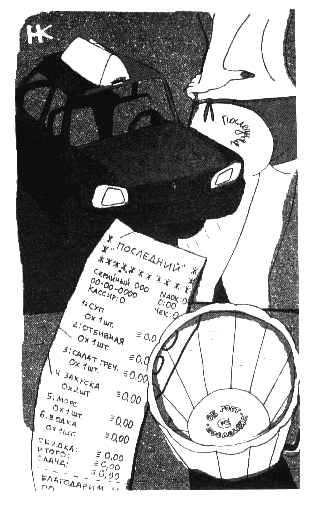 НК
Последний
"ПОСЛЕДНИЙ"
СЕРИЙНЫЙ 000
00-00-0000
КАССИР: 0
0:00
ЧЕК: 0
1: СУП
0X 1 ШТ. ≡0,0
2: ОТБИВНАЯ
0X 1 ШТ. ≡0,0
3: САЛАТ ГРЕЧ.
0X 1 ШТ. ≡0,00
4: ЗАКУСКА
0X 2 ШТ ≡0,00
5: МОРС
0X 1 ШТ ≡0,00
6. ВОДКА
0X 1 ШТ. ≡0,00
СКИДКА: ≡0,00
ИТОГО: ≡0,00
СДАЧА: ≡0,00
БЛАГОДАРИМ
ПО